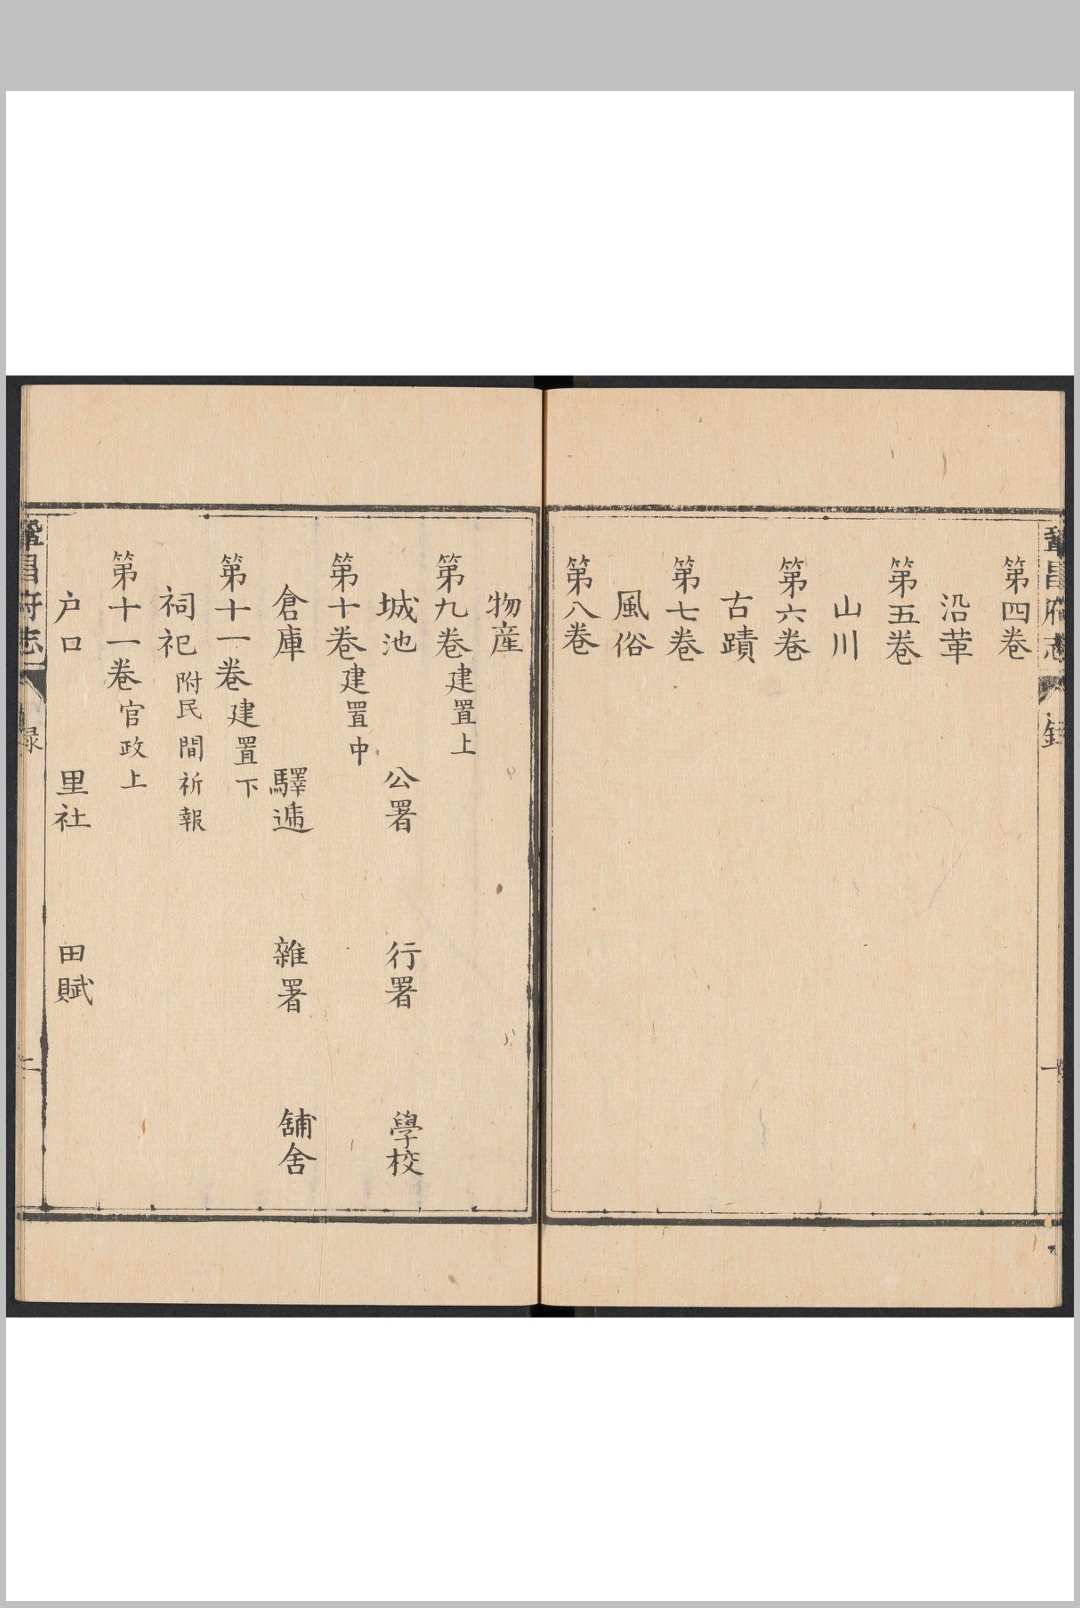 鞏昌府志
第四卷
沿革
第五卷
山川
第六卷
古蹟
第七卷
風俗
第八卷
物産
第九卷建置上
城池 公署 行署 學校
第十卷建置中
倉庫 驛逓 雜署 舖舍
第十一卷建置下
祠祀附民間祈報
第十一卷官政上
户口 里社 田賦
鞏昌府志 録 二